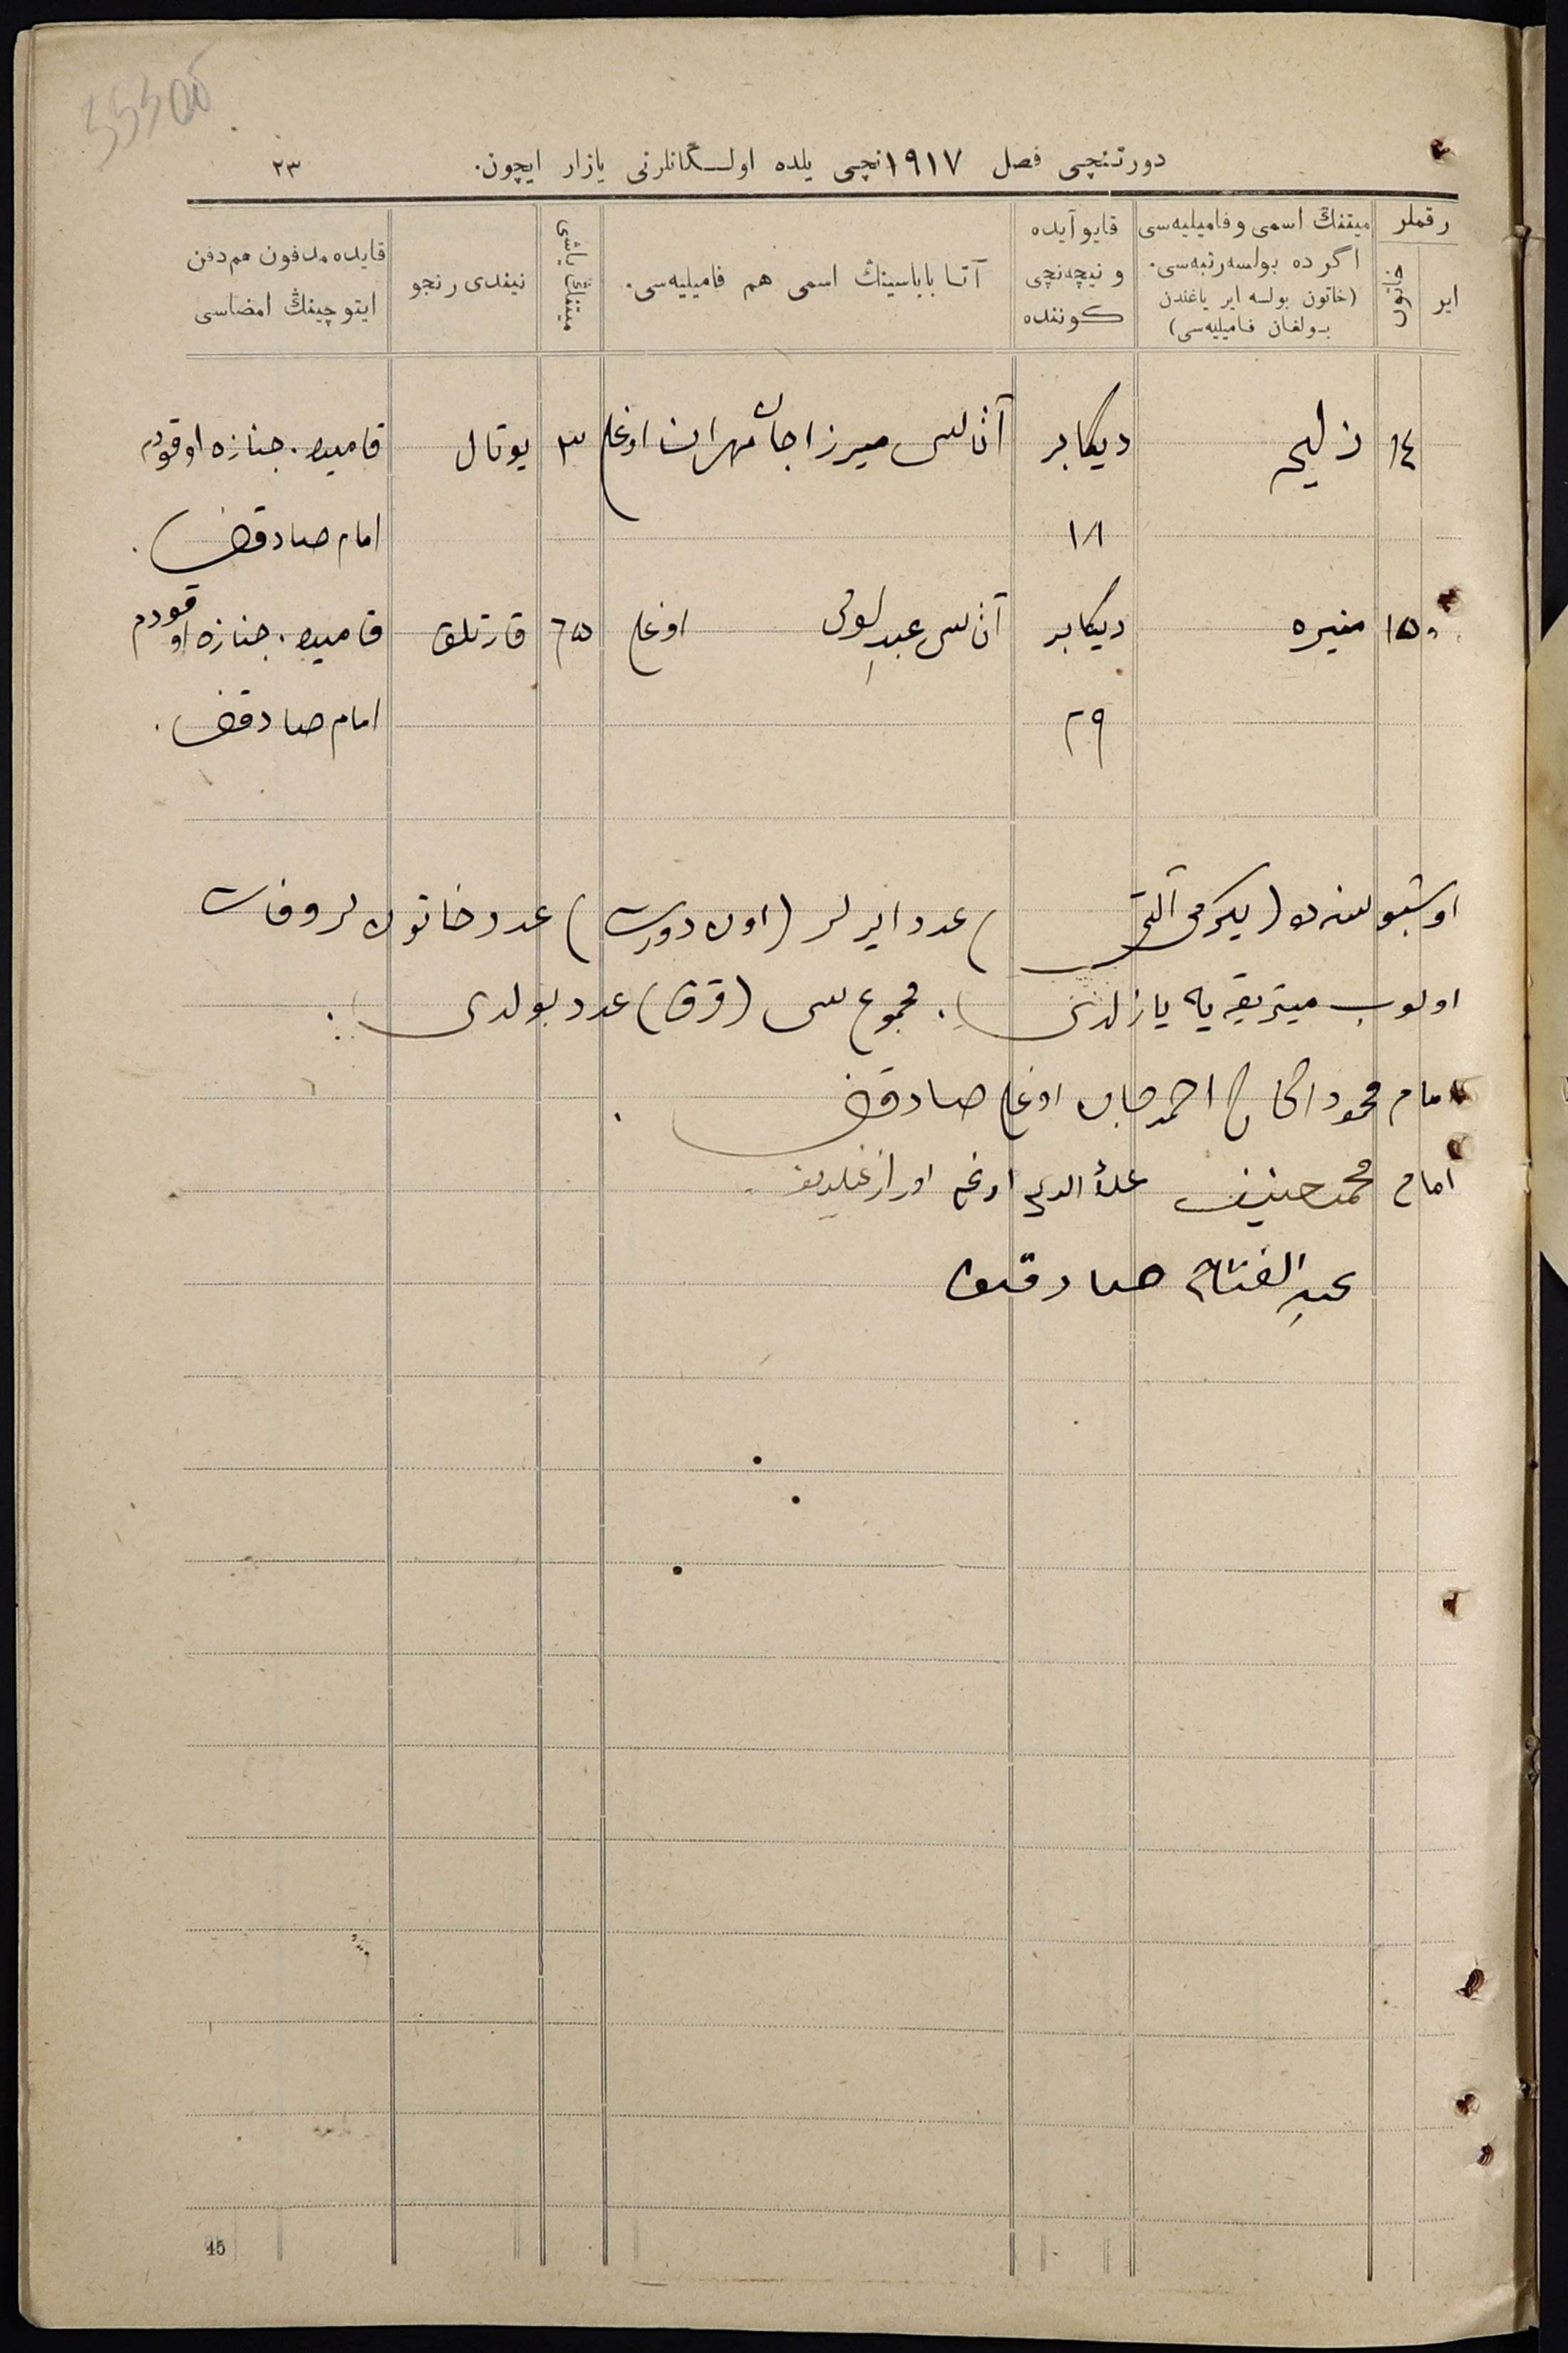 دورتنچی فصل ۱۹۱۷نچی یلده اولـگانلرنی یازار ایچون. ۲۳
رقملر
ایر
خاتون
میتنڭ اسمی و فامیلیه‌سی
اگر ده بولسه رتبه‌سی.
(خاتون بولسه ایر یاغندن
بولغان فامیلیه‌سی)
قایو آیده
و نیچه‌نچی
کوننده
آتا باباسینڭ اسمی هم فامیلیه‌سی.
میتنڭ یاشی
نیندی رنجو
قایده مدفون هم دفن
ایتوچینڭ امضاسی
۱٤ زلیحه دیکابر آتاسی میرزاجان مهران اوغلی ۳ یوتال جنازه اوقودم
۱۸ امام صادقف.
۱۵ منیره دیکابر آتاسی اوغلی ۶۵ قارتلق جنازه اوقودم
۲۹ امام صادقف.
اوشبو سنه‌ده (یکرمی آلتی) عدد ایرلر (اون دورت) عدد خاتونلر وفات
اولوب میتریقه‌یه یازلدی. مجموع‌سی (قرق) عدد بولدی.
امام محمود الحاج احمدجان اوغلی صادقف.
امام محمدحنیف اوغلی
عبدالفتاح صادقف
15